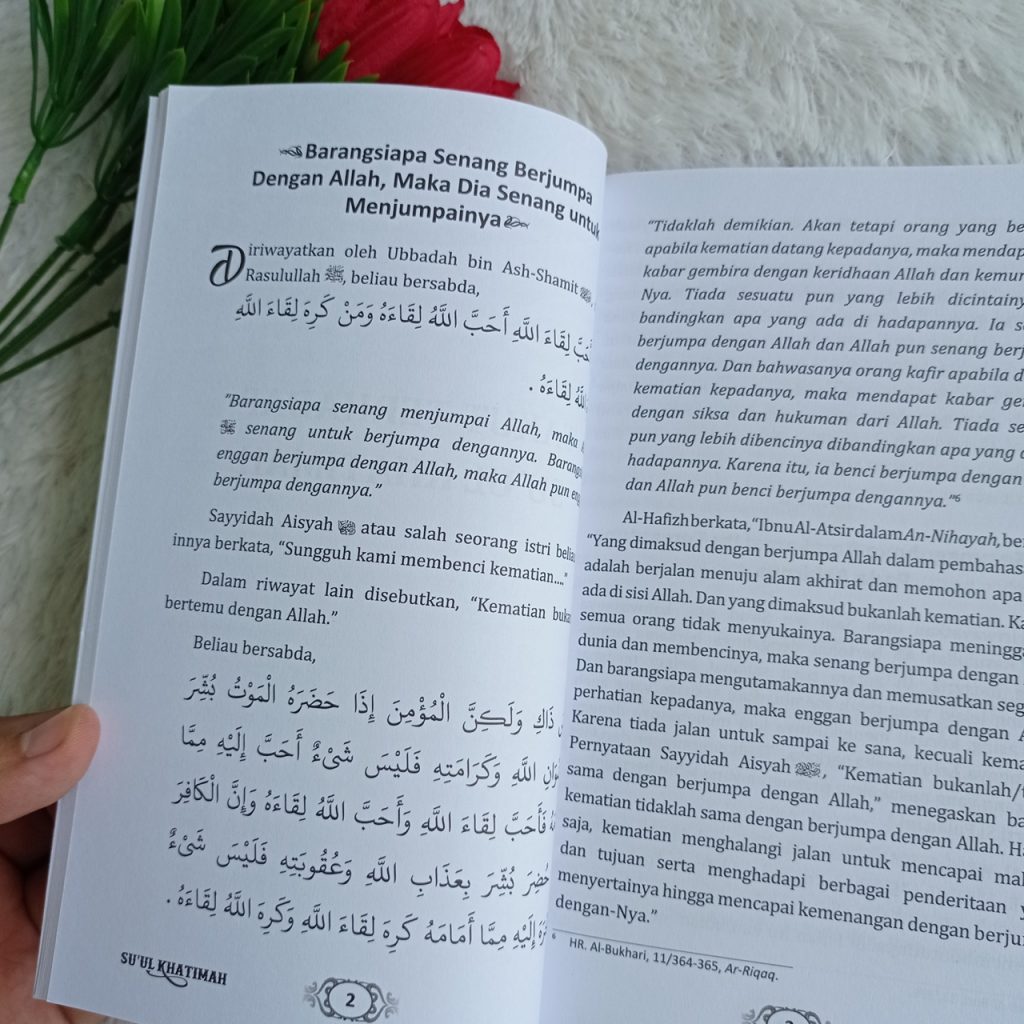 Barangsiapa Senang Berjumpa
Dengan Allah, Maka Dia Senang untuk
Menjumpainya
Diriwayatkan oleh Ubbadah bin Ash-Shamit
Rasulullah ﷺ, beliau bersabda,
لِقَاءَ اللَّهِ أَحَبَّ اللَّهُ لِقَاءَهُ وَمَنْ كَرِهَ لِقَاءَ اللَّهِ
لِقَاءَهُ .
"Barangsiapa senang menjumpai Allah, maka
senang untuk berjumpa dengannya.
enggan berjumpa dengan Allah, maka Allah pun
berjumpa dengannya."
Sayyidah Aisyah atau salah seorang istri
innya berkata, "Sungguh kami membenci kematian...."
Dalam riwayat lain disebutkan, "Kematian
bertemu dengan Allah."
Beliau bersabda,
ذَاكِ وَلَكِنَّ الْمُؤْمِنَ إِذَا حَضَرَهُ الْمَوْتُ بُشِّرَ
اللَّهِ وَكَرَامَتِهِ فَلَيْسَ شَيْءٌ أَحَبَّ إِلَيْهِ مِمَّا
فَأَحَبَّ لِقَاءَ اللَّهِ وَأَحَبَّ اللَّهُ لِقَاءَهُ وَإِنَّ الْكَافِرَ
حُضِرَ بُشِّرَ بِعَذَابِ اللَّهِ وَعُقُوبَتِهِ فَلَيْسَ شَيْءٌ
إِلَيْهِ مِمَّا أَمَامَهُ كَرِهَ لِقَاءَ اللَّهِ وَكَرِهَ اللَّهُ لِقَاءَهُ .
SU'UL KHATIMAH
2
"Tidaklah demikian. Akan tetapi orang yang
apabila kematian datang kepadanya, maka
kabar gembira dengan keridhaan Allah dan
Nya. Tiada sesuatu pun yang lebih
bandingkan apa yang ada di hadapannya. Ia
berjumpa dengan Allah dan Allah pun senang
dengannya. Dan bahwasanya orang kafir apabila
kematian kepadanya, maka mendapat kabar
dengan siksa dan hukuman dari Allah. Tiada
pun yang lebih dibencinya dibandingkan apa yang
hadapannya. Karena itu, ia benci berjumpa dengan
dan Allah pun benci berjumpa dengannya."6
Al-Hafizh berkata, "Ibnu Al-Atsir dalam An-Nihayah,
"Yang dimaksud dengan berjumpa Allah dalam
adalah berjalan menuju alam akhirat dan memohon apa
ada di sisi Allah. Dan yang dimaksud bukanlah kematian.
semua orang tidak menyukainya. Barangsiapa
dunia dan membencinya, maka senang berjumpa dengan
Dan barangsiapa mengutamakannya dan memusatkan
perhatian kepadanya, maka enggan berjumpa dengan
Karena tiada jalan untuk sampai ke sana, kecuali
Pernyataan Sayyidah Aisyah, "Kematian
sama dengan berjumpa dengan Allah," menegaskan
kematian tidaklah sama dengan berjumpa dengan Allah.
saja, kematian menghalangi jalan untuk mencapai
dan tujuan serta menghadapi berbagai penderitaan
menyertainya hingga mencapai kemenangan dengan
dengan-Nya."
6 HR. Al-Bukhari, 11/364-365, Ar-Riqaq.